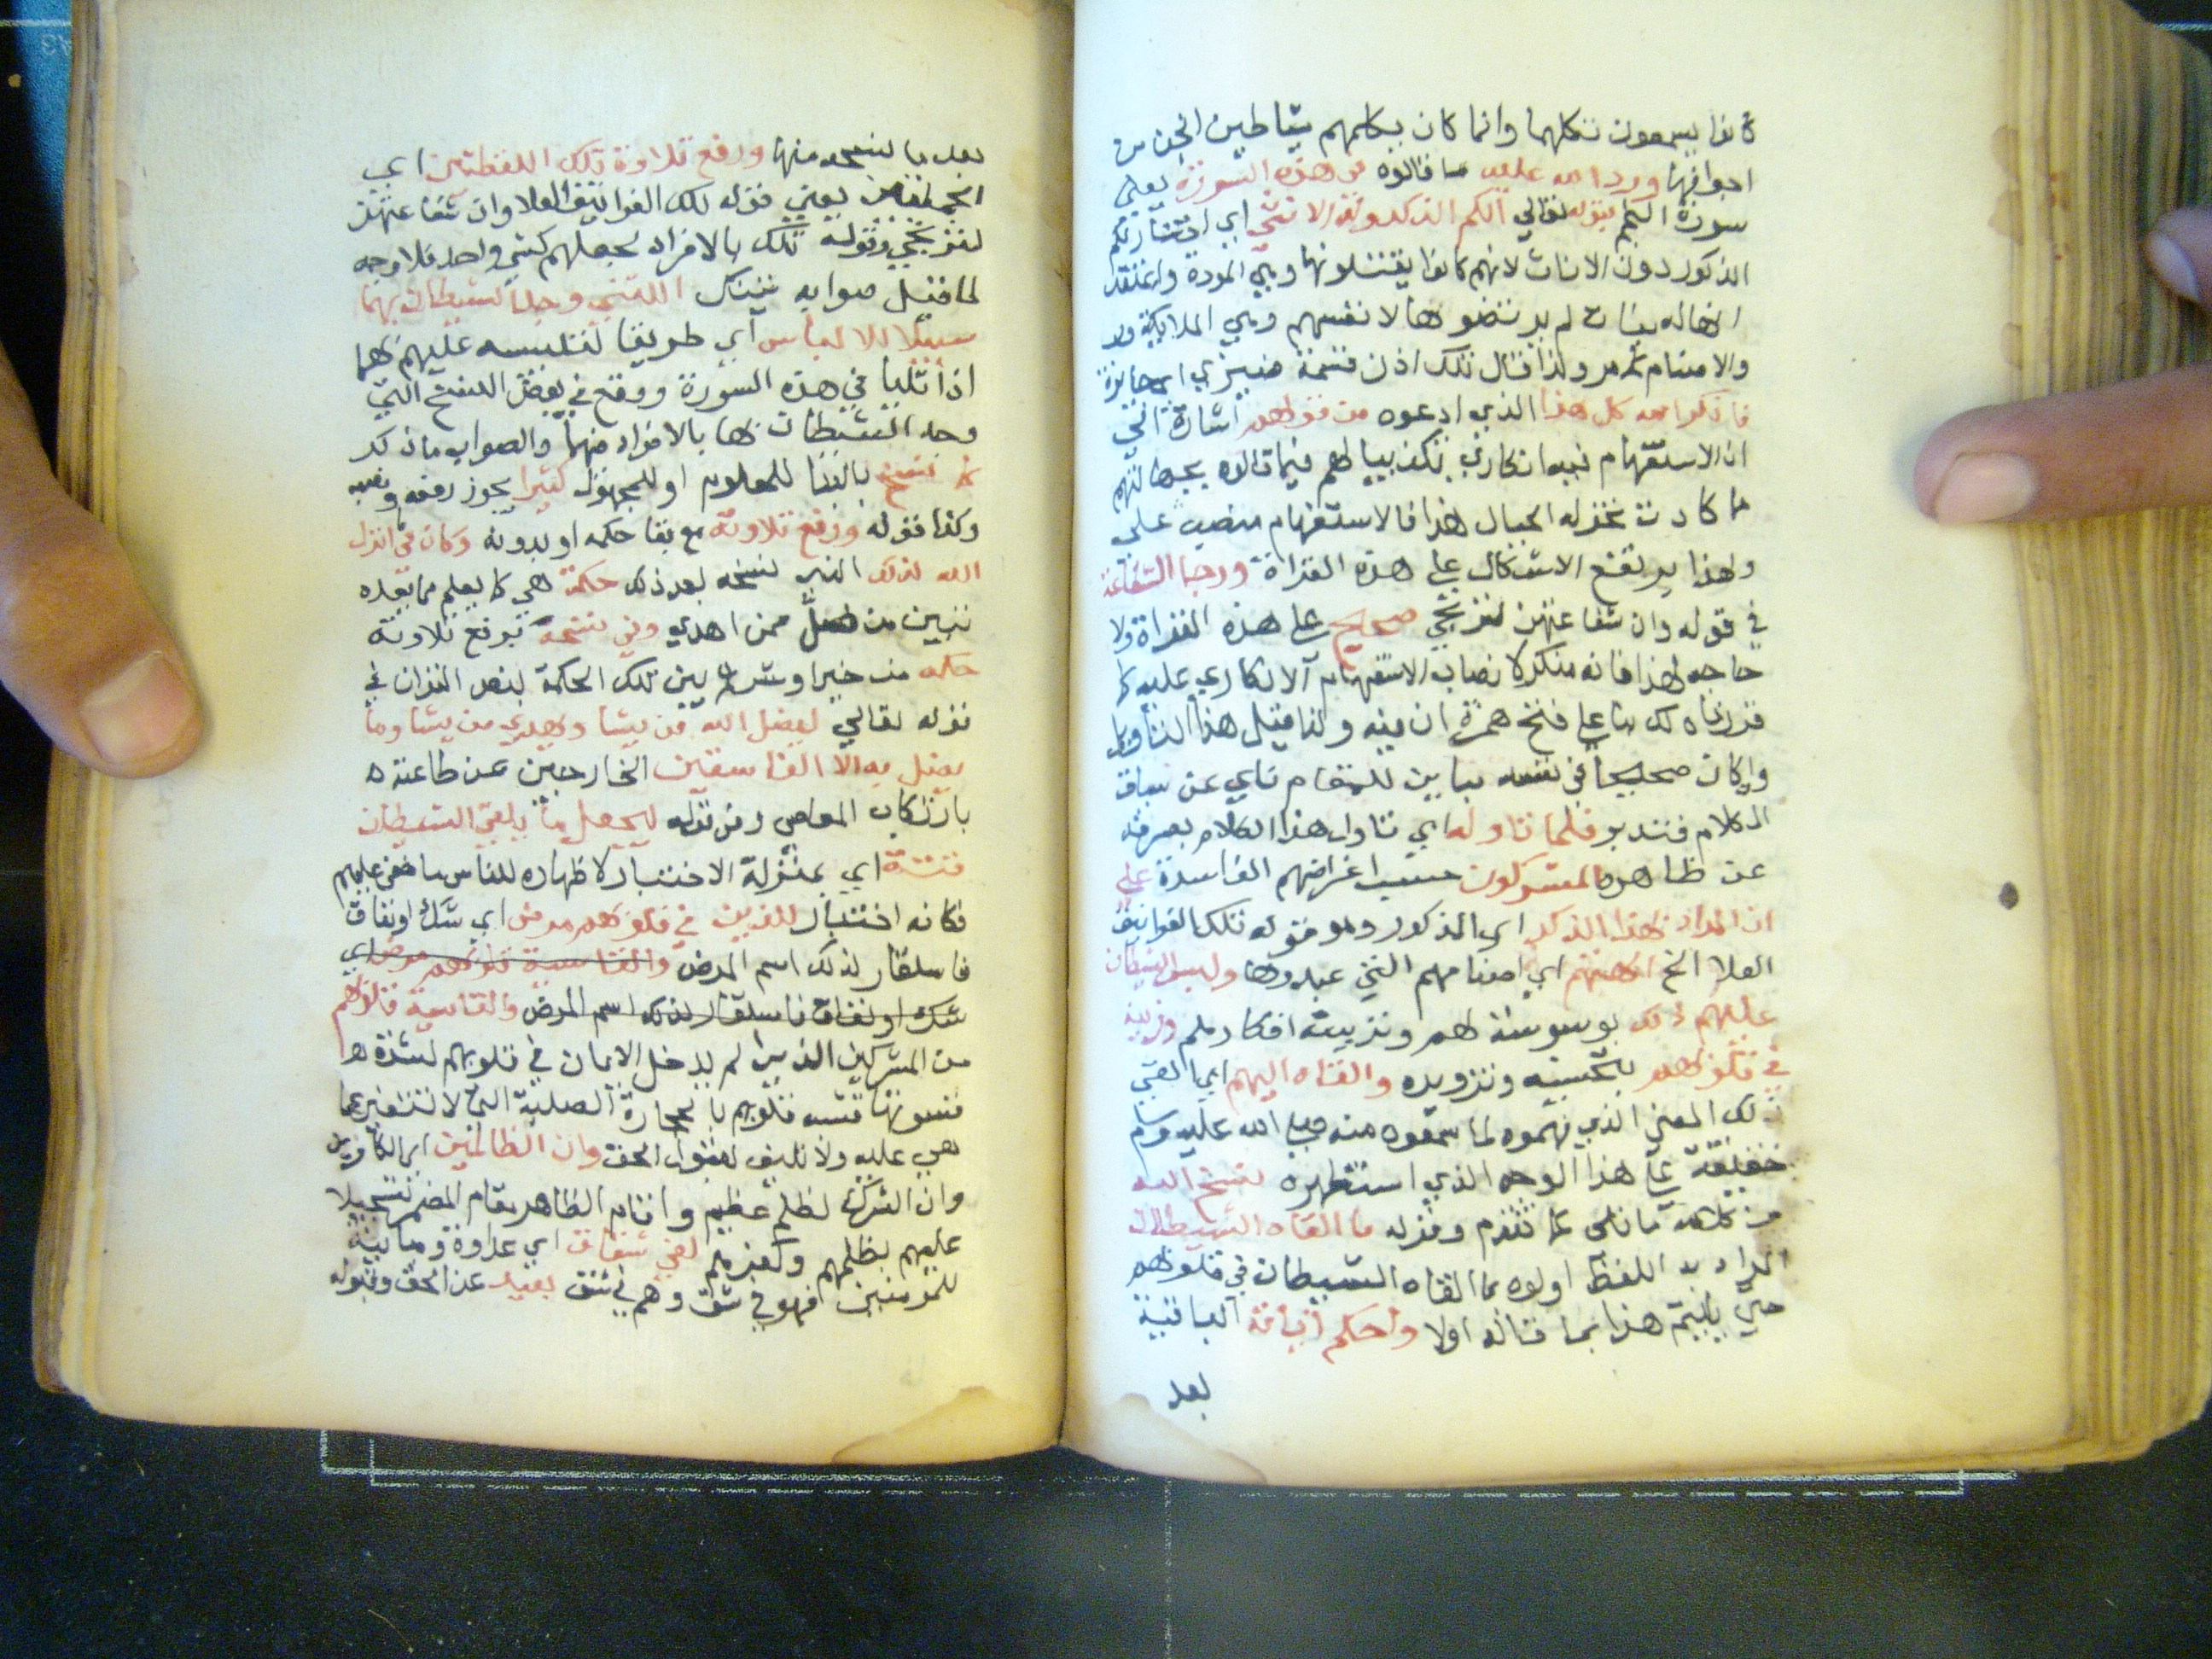 كانوا يسمعون تكلمها وانما كان يكلمهم شياطين الجن من
اجوافها ورد الله عليهم ما قالوه في هذه السورة يعني
سورة النجم بقوله تعالى ألكم الذكر وله الانثى اي اختياركم
الذكور دون الاناث لانهم كانوا يقتلونها وهي المودة واعتقد
ان له بنات لم يرتضوها لانفسهم وهي الملائكة
والاصنام كما مر ولذا قال تلك اذن قسمة ضيزى اي جايرة
فانكر الله كل هذا الذي ادعوه من قولهم اشارة الى
ان الاستفهام فيه انكاري تكذيبا لهم فيما قالوه بجهالتهم
ما كادت تخر له الجبال هذا فالاستفهام منصب على
وبهذا يرتفع الاشكال على هذه القراة ورجا الشفاعة
في قوله وان شفاعتهن لترتجى صحيح على هذه القراة ولا
حاجه لهذا فانه منكر لانصاب الاستفهام الانكاري عليه كما
قررناه لك بنا على فتح همزة ان فيه ولذا قيل هذا التاويل
وان كان صحيحا في نفسه مباين للمقام نابي عن سياق
الكلام فتدبر فلما تاوله اي تناول هذا الكلام بصرفه
عن ظاهره المشركون حسب اغراضهم الفاسدة على
ان المراد بهذا الذكر اي المذكور وهو قوله تلك الغرانيق
العلا الخ الهتهم اي اصنامهم التي عبدوها ولبس الشيطان
عليهم ذلك بوسوسته لهم وتزيينه افكارهم وزينه
في قلوبهم بتحسينه وتزويره والقاه اليهم اي القى
ذلك المعنى الذي فهموه لما سمعوه منه صلى الله عليه وسلم
حقيقة على هذا الوجه الذي استظهره نسخ الله
من كلامه ما تلى كما تقدم وقوله ما القاه الشيطان
المراد به اللفظ اولاه بما القاه الشيطان في قلوبهم
حتى يلتئم هذا بما قاله اولا واحكم آياته الباقية
بعد
بعد ما نسخه منها ورفع تلاوة تلك اللفظتين اي
الجملتين يعني قوله تلك الغرانيق العلا وان شفاعتهن
لترتجى وقوله تلك بالافراد لجعلهم كشي واحد فلا وجه
لما قيل صوابه تينك اللتين وجد الشيطان بهما
سبيلا للالباس اي طريقا لتلبيسه عليهم بهما
اذا تليا في هذه السورة ووقع في بعض النسخ التي
وجد الشيطان بها بالافراد فيهما والصواب ما ذكر
كما نسخ بالبنا للمعلوم او للمجهول كثيرا يجوز رفعه ونصبه
وكذا قوله ورفع تلاوته مع بقا حكمه او بدونه وكان في انزال
الله لذلك الذي نسخه بعد ذلك حكمة هي كما يعلم مما بعده
تبين من ضل ممن اهتدى وفي نسخه برفع تلاوته
حكمه من خير او شر ثم بين تلك الحكمة بنص القران في
قوله تعالى ليضل الله من يشا ويهدي من يشا وما
يضل به الا الفاسقين الخارجين عن طاعته
بارتكاب المعاصي ومن قوله ليجعل ما يلقي الشيطان
فتنة اي بمنزلة الاختبار لاظهاره للناس ما خفي عليهم
فكانه اختبار للذين في قلوبهم مرض اي شك او نفاق
فاستعار لذلك اسم المرض والقاسية قلوبهم مرض اي
شك او نفاق فاستعار لذلك اسم المرض والقاسية قلوبهم
من المشركين الذين لم يدخل الايمان في قلوبهم لشدة
قسوتها فشبه قلوبهم بالحجارة الصلبة التي لا تتغير عما
هي عليه ولا تلين لقبول الحق وان الظالمين اي الكافرين
وان الشرك لظلم عظيم واقام الظاهر مقام المضمر تسجيلا
عليهم بظلمهم وكفرهم لفي شقاق اي عداوة ومباينة
للمومنين فهو في شق وهم في شق بعيد عن الحق وقبوله